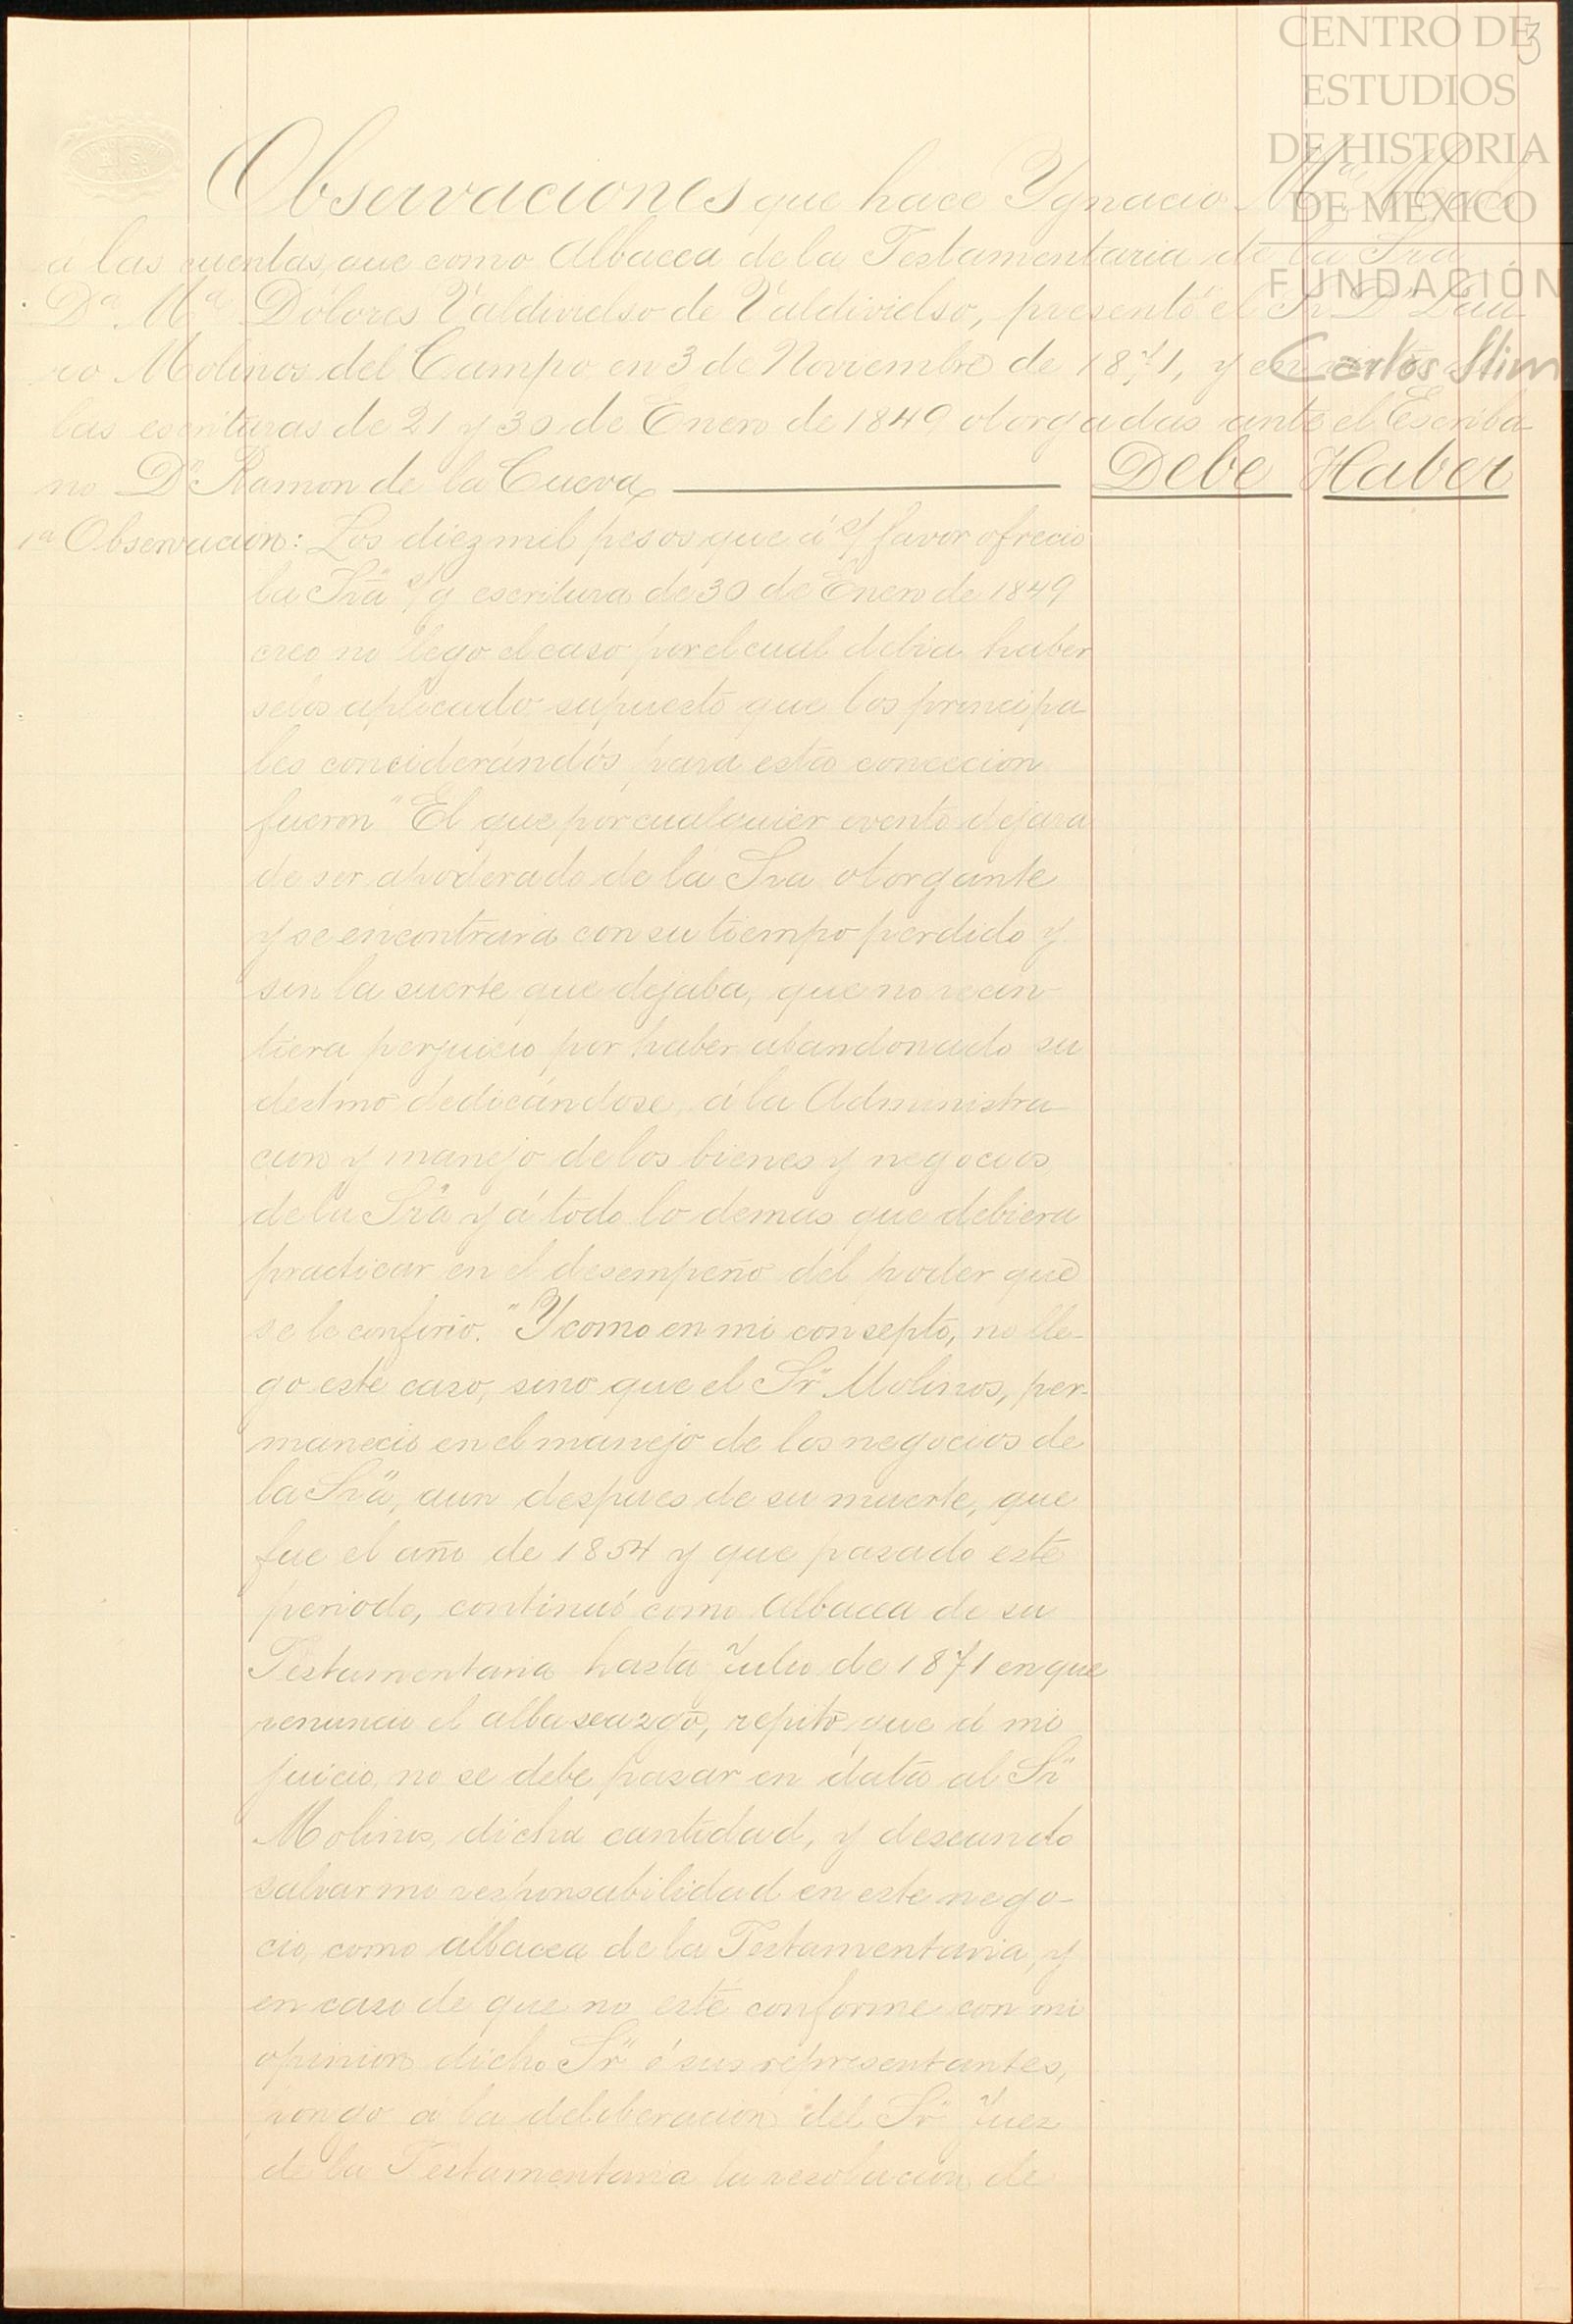 3
CENTRO DE
ESTUDIOS
DE HISTORIA
DE MEXICO
FUNDACIÓN
Carlos Slim
Observaciones que hace Ygnacio Mª
á las cuentas, que como Albacea de la Testamentaria de la Sra
Dª Mª Dolores Valdivielso de Valdivielso, presentó el Sr Dn Lau-
ro Molinos del Campo en 3 de Noviembre de 1871, y en
las escrituras de 21 y 30 de Enero de 1849 otorgadas ante el Escriba-
no Dn Ramon de la Cueva Debe Haber
1ª Observacion: Los diez mil pesos que á s/ favor ofreció
la Sra s/g escritura de 30 de Enero de 1849
creo no llego el caso por el cual debia haber
selos aplicado supuesto que los principa
les conciderándos para esta conceccion
fueron "El que por cualquier evento dejara
de ser apoderado de la Sra otorgante
y se encontrara con su tiempo perdido y
sin la suerte que dejaba, que no recin-
tiera perjuicio por haber abandonado su
destino dedicándose, á la Administra-
cion y manejo de los bienes y negocios
de la Sra y á todo lo demas que debiera
practicar en el desempeño del poder que
se le confirio." Y como en mi consepto, no lle-
go este caso, sino que el Sr Molinos, per-
maneció en el manejo de los negocios de
la Sra, aun despues de su muerte, que
fue el año de 1854 y que pasado este
periodo, continuó como Albacea de su
Testamentaria hasta Julio de 1871 en que
renuncio el albaseazgo, repito que á mi
juicio, no se debe pasar en data al Sr
Molinos, dicha cantidad, y deseando
salvar mi responsabilidad en este nego-
cio, como albacea de la Testamentaria, y
en caso de que no esté conforme con mi
opinion dicho Sr ó sus representantes,
pongo á la deliberacion del Sr Juez
de la Testamentaria la resolucion de